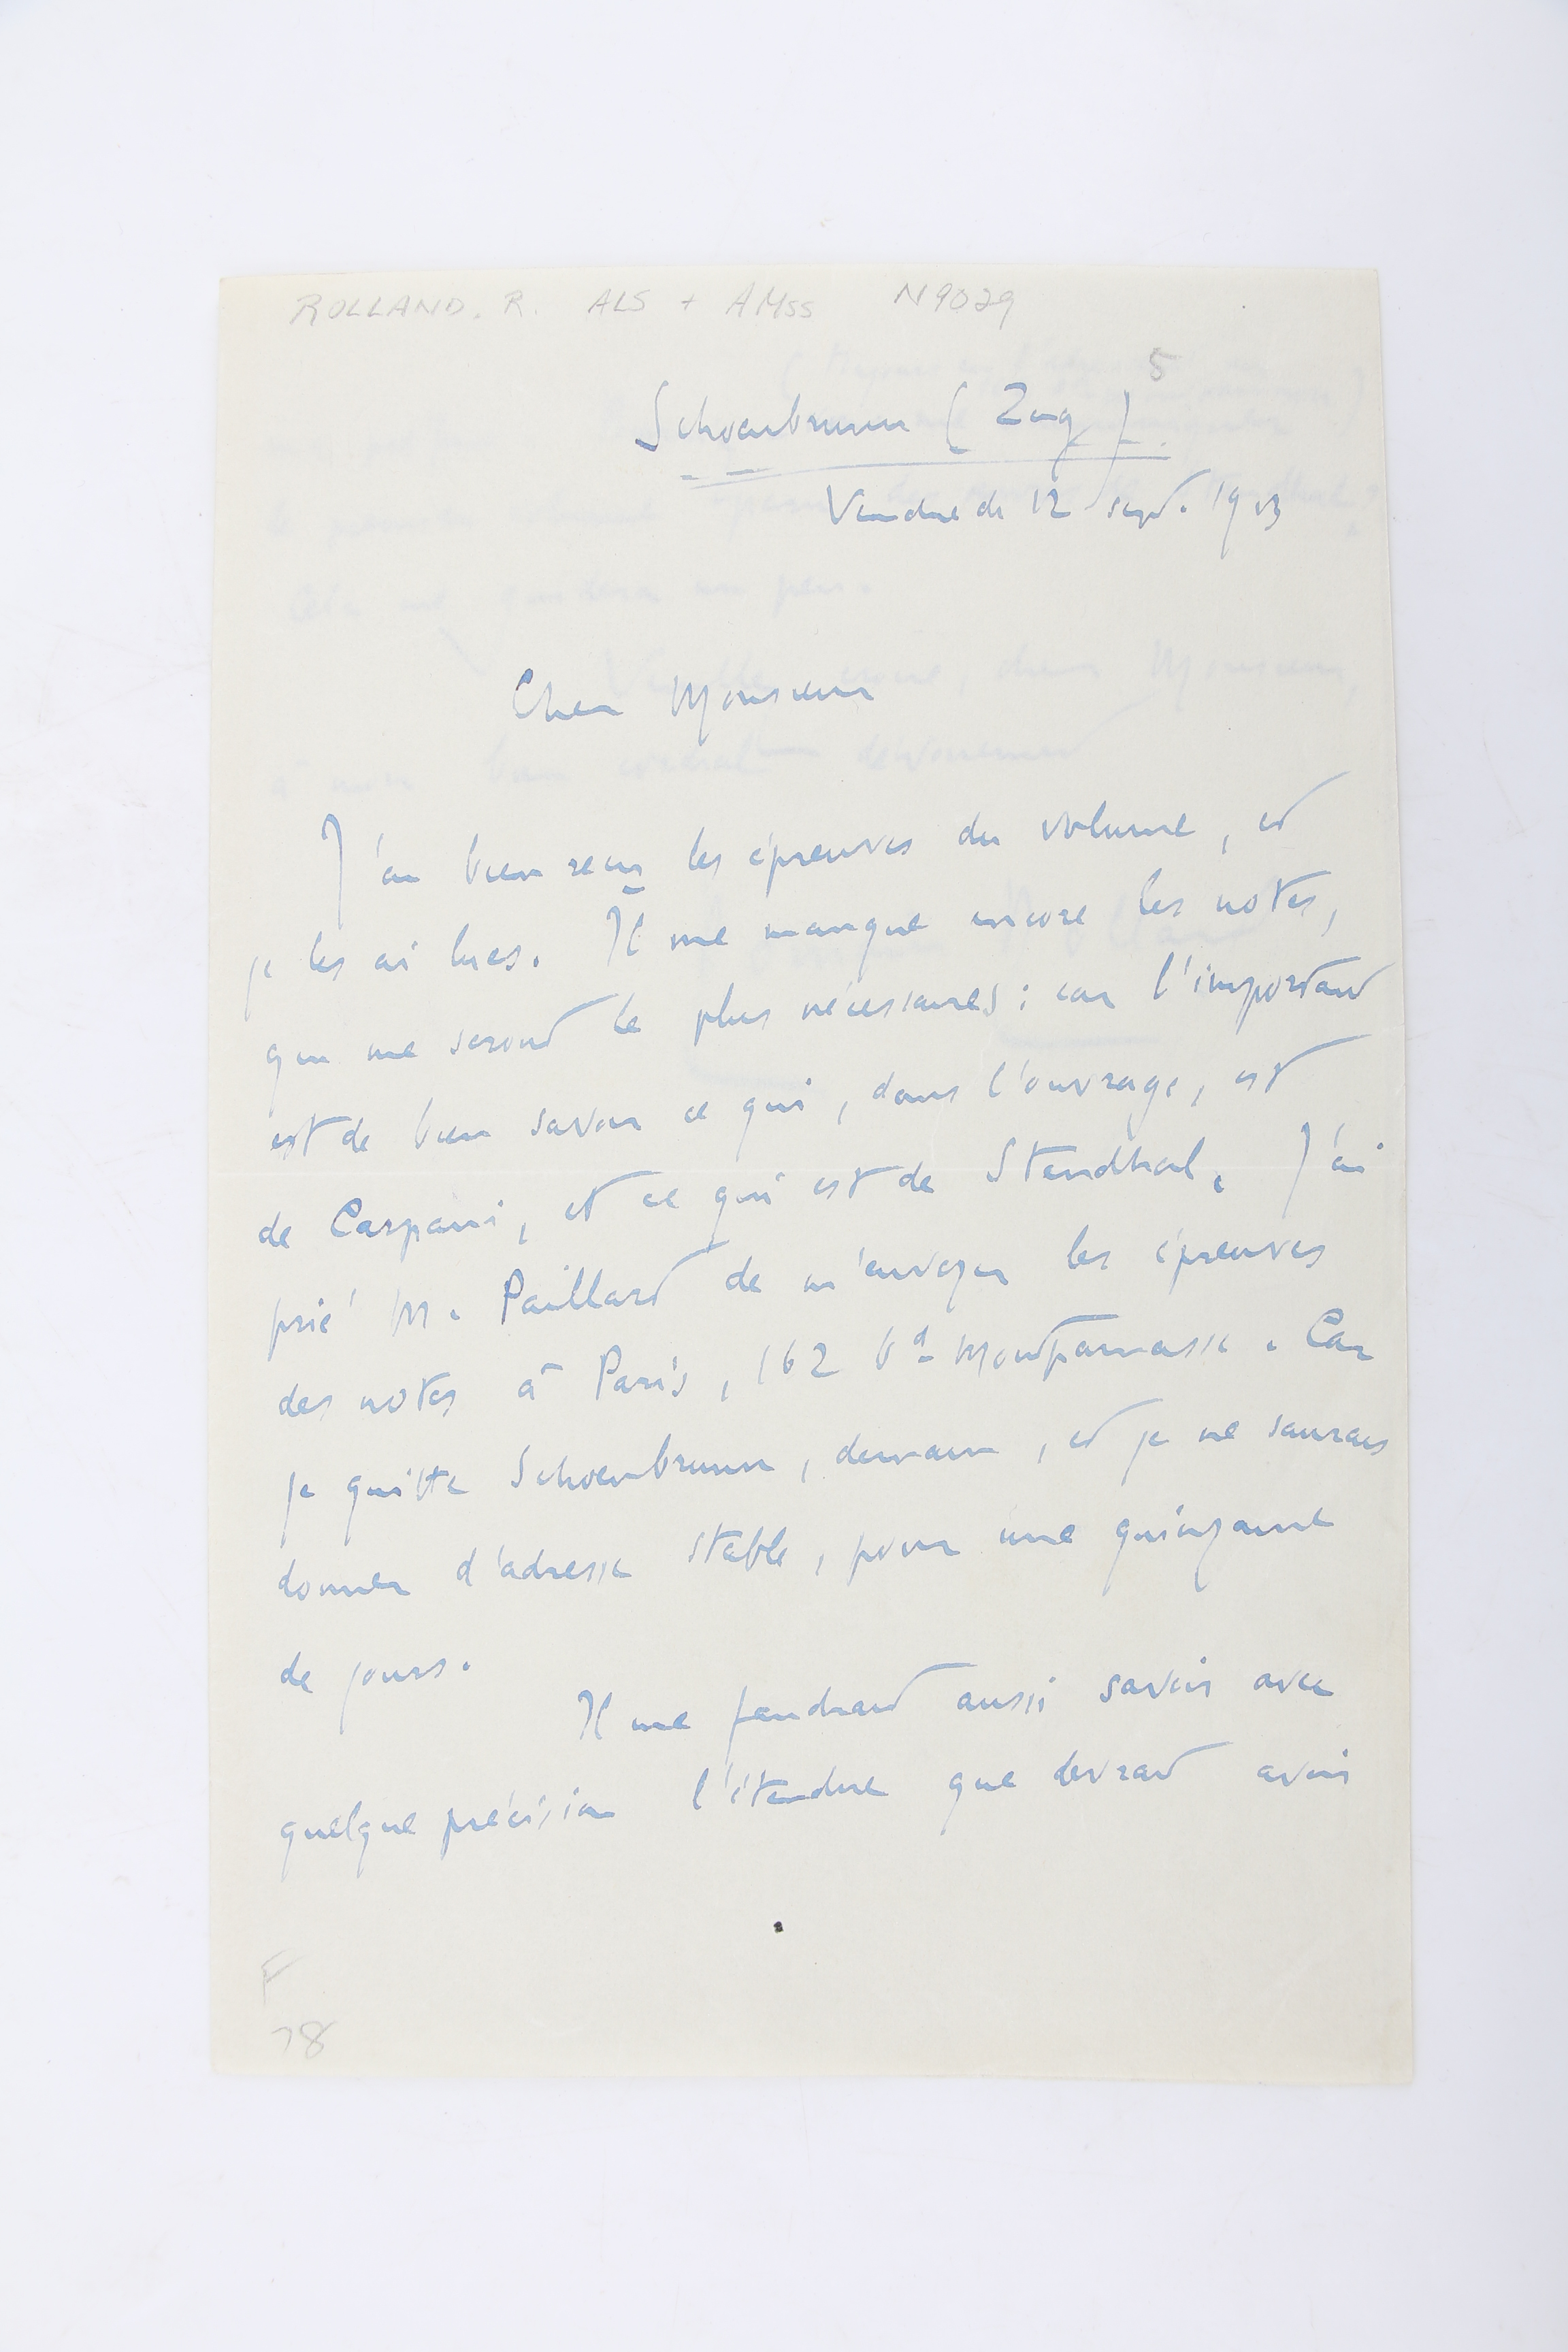 ROLLAND. R. ALS + AMSS N9029
5
Schoenbrunn (Zug).
Vendredi 12 sept. 1913
Cher Monsieur
J'ai bien reçu les épreuves du volume, et
je les ai lues. Il me manque encore les notes,
qui me seront le plus nécessaires : car l'important
est de bien savoir ce qui, dans l'ouvrage, est
de Carpani, et ce qui est de Stendhal. J'ai
prié M. Paillard de m'envoyer les épreuves
des notes à Paris, 162 bd Montparnasse. Car
je quitte Schoenbrunn, demain, et je ne saurais
donner d'adresse stable, pour une quinzaine
de jours.
Il me faudrait aussi savoir avec
quelque précision l'étendue que devrait avoir
F
78